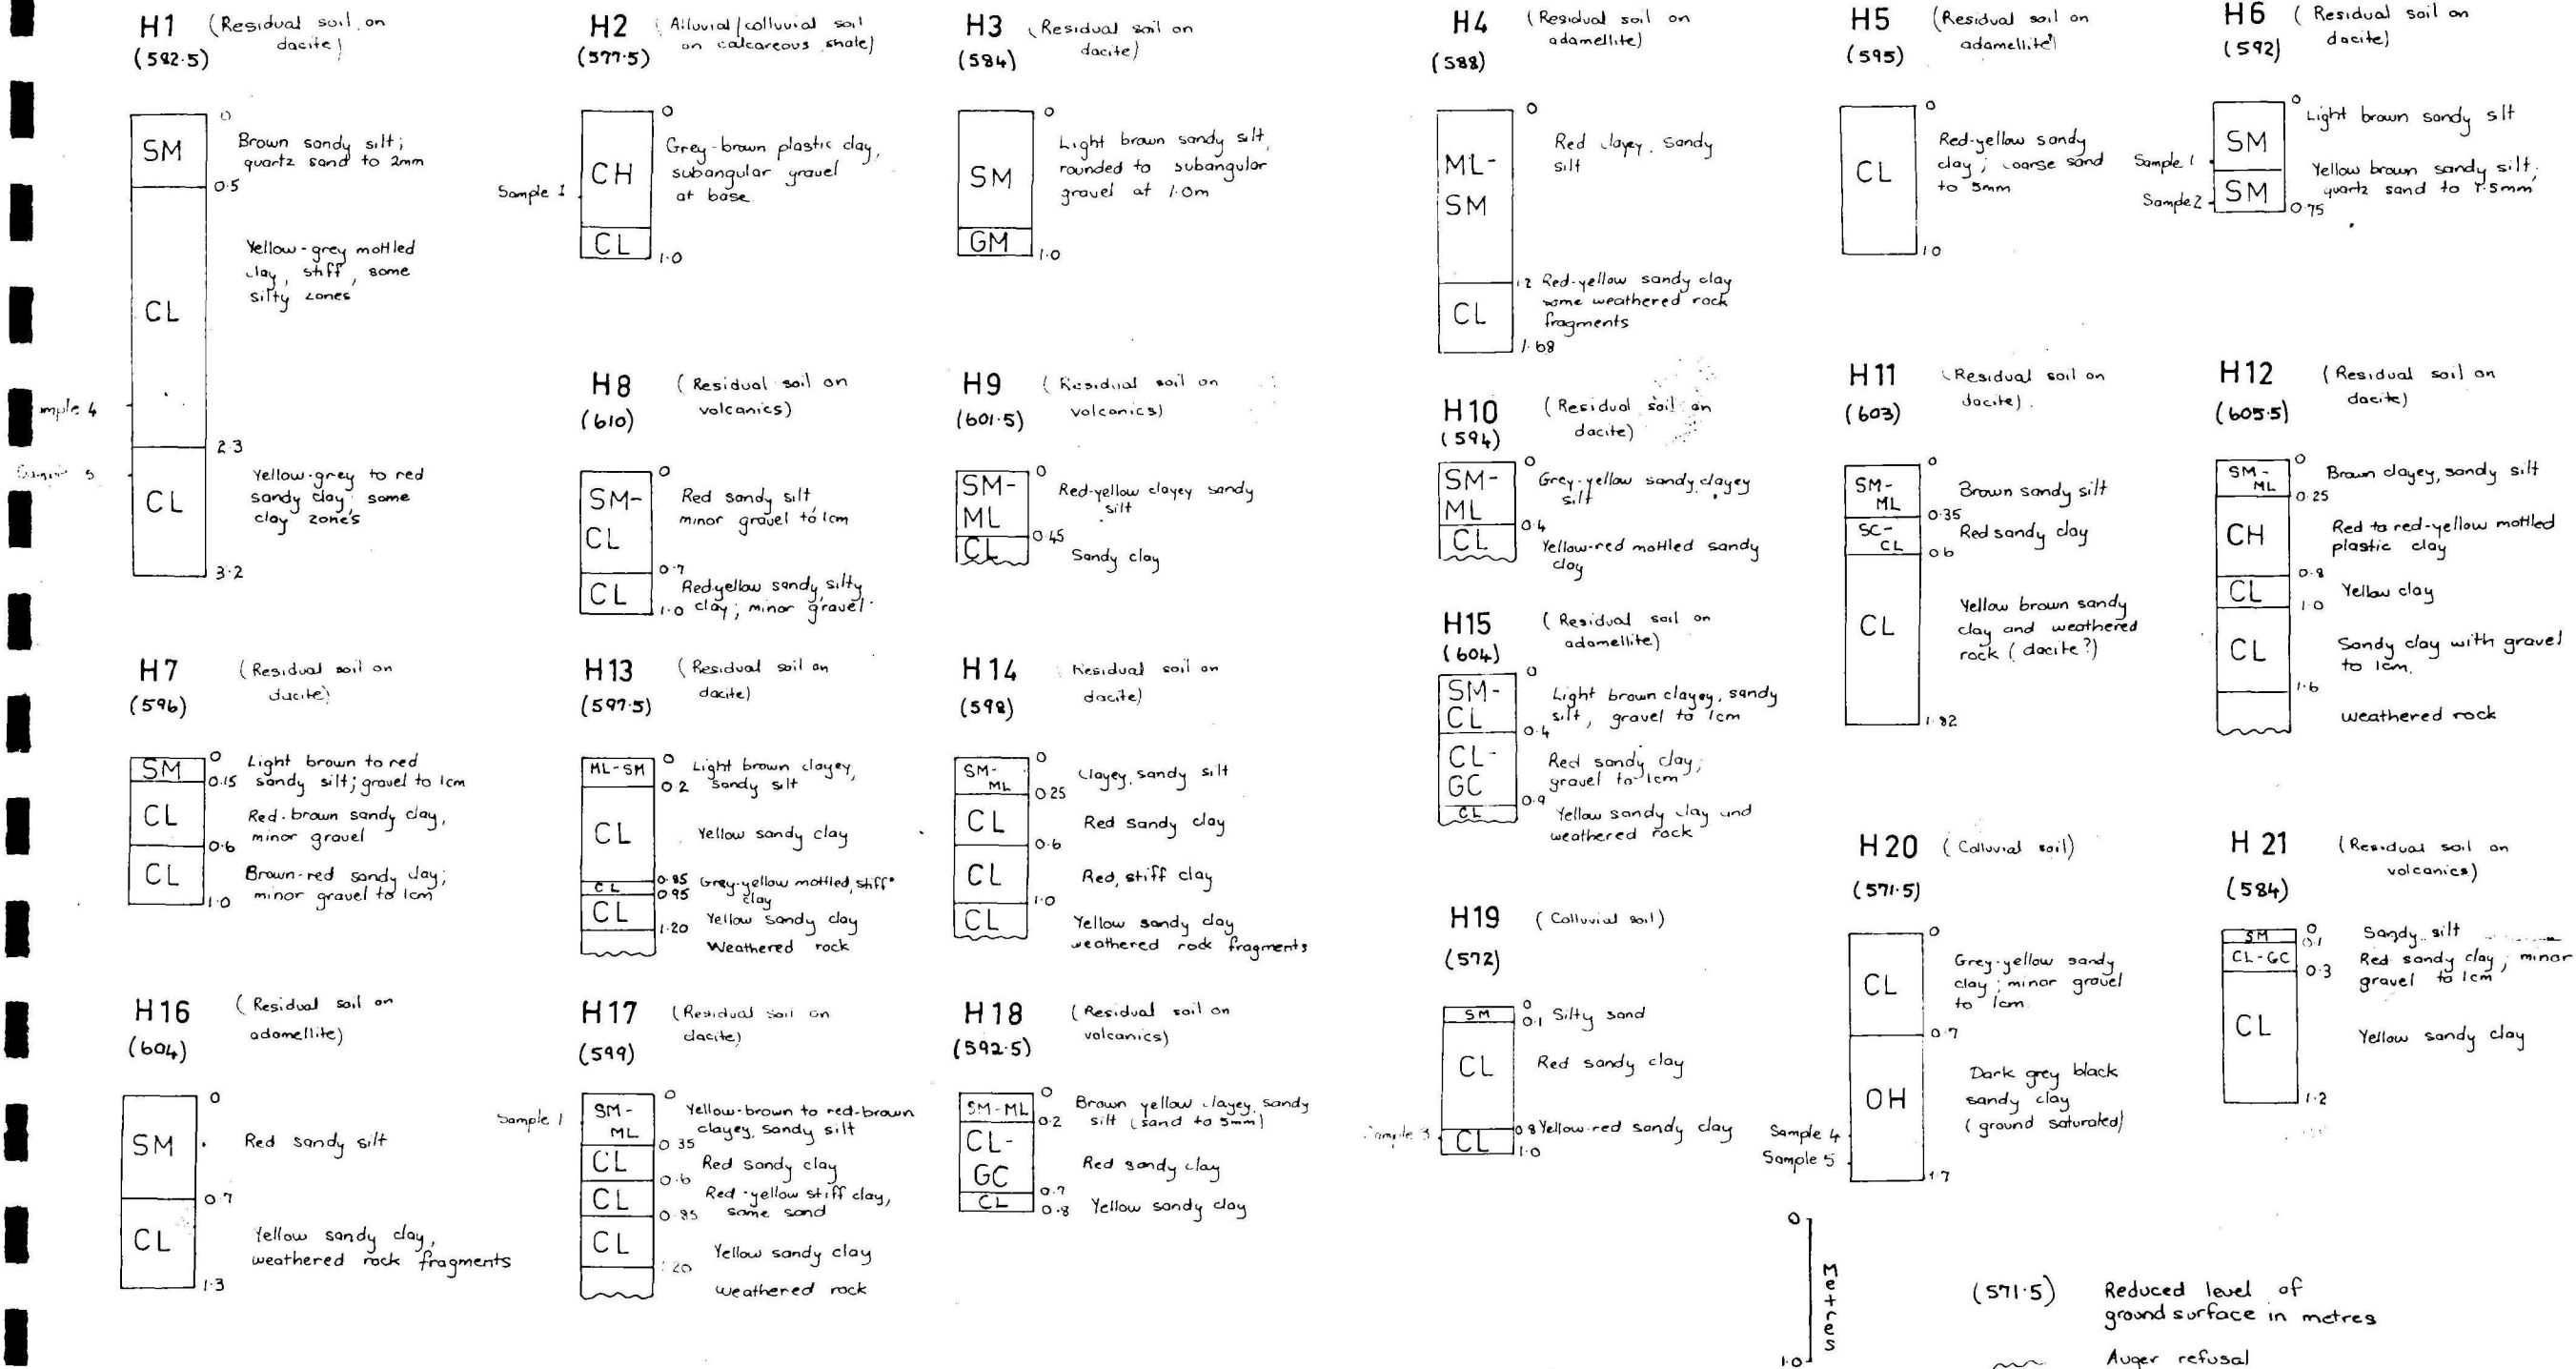 H1 (Residual soil on
dacite)
(592.5)
0
SM
Brown sandy silt;
quartz sand to 2mm
0.5
CL
Yellow-grey mottled
clay, stiff, some
silty zones
mple 4
2.3
5
CL
Yellow-grey to red
sandy clay, some
clay zones
3.2
H2 (Alluvial/colluvial soil
on calcareous shale)
(577.5)
0
CH
Grey-brown plastic clay,
subangular gravel
at base.
Sample 1
CL
1.0
H3 (Residual soil on
dacite)
(584)
0
SM
Light brown sandy silt,
rounded to subangular
gravel at 1.0m
GM
1.0
H4 (Residual soil on
adamellite)
(588)
0
ML-
SM
Red clayey, sandy
silt
1.2
CL
Red-yellow sandy clay
some weathered rock
fragments
1.68
H5 (Residual soil on
adamellite)
(595)
0
CL
Red-yellow sandy
clay; coarse sand
to 5mm
1.0
H6 (Residual soil on
dacite)
(592)
0
SM
Light brown sandy silt
Sample 1
SM
Yellow brown sandy silt;
quartz sand to 1.5mm
Sample 2
0.75
H8 (Residual soil on
volcanics)
(610)
0
SM-
CL
Red sandy silt
minor gravel to 1cm
0.7
CL
Red-yellow sandy, silty
clay; minor gravel.
1.0
H9 (Residual soil on
volcanics)
(601.5)
0
SM-
ML
Red-yellow clayey sandy
silt
0.45
CL
Sandy clay
H10 (Residual soil on
dacite)
(594)
0
SM-
ML
Grey-yellow sandy, clayey
silt
0.4
CL
Yellow-red mottled sandy
clay
H11 (Residual soil on
dacite).
(603)
0
SM-
ML
Brown sandy silt
0.35
SC-
CL
Red sandy clay
0.6
CL
Yellow brown sandy
clay and weathered
rock (dacite?)
1.82
H12 (Residual soil on
dacite)
(605.5)
0
SM-
ML
Brown clayey, sandy silt
0.25
CH
Red to red-yellow mottled
plastic clay
0.8
CL
Yellow clay
1.0
CL
Sandy clay with gravel
to 1cm.
1.6
weathered rock
H7 (Residual soil on
dacite)
(596)
0
SM
0.15
Light brown to red
sandy silt; gravel to 1cm
CL
Red-brown sandy clay,
minor gravel
0.6
CL
Brown-red sandy clay;
minor gravel to 1cm
1.0
H13 (Residual soil on
dacite)
(597.5)
0
ML-SM
Light brown clayey,
sandy silt
0.2
CL
Yellow sandy clay
0.85
CL
Grey-yellow mottled, stiff
clay
0.95
CL
Yellow sandy clay
1.20
Weathered rock
H14 Residual soil on
dacite)
(598)
0
SM-
ML
Clayey, sandy silt
0.25
CL
Red Sandy clay
0.6
CL
Red, stiff clay
1.0
CL
Yellow sandy clay
weathered rock fragments
H15 (Residual soil on
adamellite)
(604)
0
SM-
CL
Light brown clayey, sandy
silt, gravel to 1cm
0.4
CL-
GC
Red sandy clay;
gravel to 1cm
0.9
CL
Yellow sandy clay and
weathered rock
H16 (Residual soil on
adamellite)
(604)
0
SM
Red sandy silt
0.7
CL
Yellow sandy clay,
weathered rock fragments
1.3
H17 (Residual soil on
dacite)
(599)
0
Sample 1
SM-
ML
Yellow-brown to red-brown
clayey, sandy silt
0.35
CL
Red sandy clay
0.6
CL
Red-yellow stiff clay,
some sand
0.85
CL
Yellow sandy clay
1.20
weathered rock
H18 (Residual soil on
volcanics)
(592.5)
0
SM-ML
Brown yellow clayey, sandy
silt (sand to 5mm)
0.2
CL-
GC
Red sandy clay
0.7
CL
0.8
Yellow sandy clay
H19 (Colluvial soil)
(572)
0
SM
0.1
Silty sand
CL
Red sandy clay
0.8
Yellow-red sandy clay
Sample 3
CL
1.0
H20 (Colluvial soil)
(571.5)
0
CL
Grey-yellow sandy
clay; minor gravel
to 1cm.
0.7
OH
Dark grey black
sandy clay
(ground saturated)
Sample 4
Sample 5
1.7
H21 (Residual soil on
volcanics)
(584)
0
SM
0.1
Sandy silt
CL-GC
0.3
Red sandy clay; minor
gravel to 1cm
CL
Yellow sandy clay
1.2
0
Metres
1.0
(571.5) Reduced level of
ground surface in metres
Auger refusal